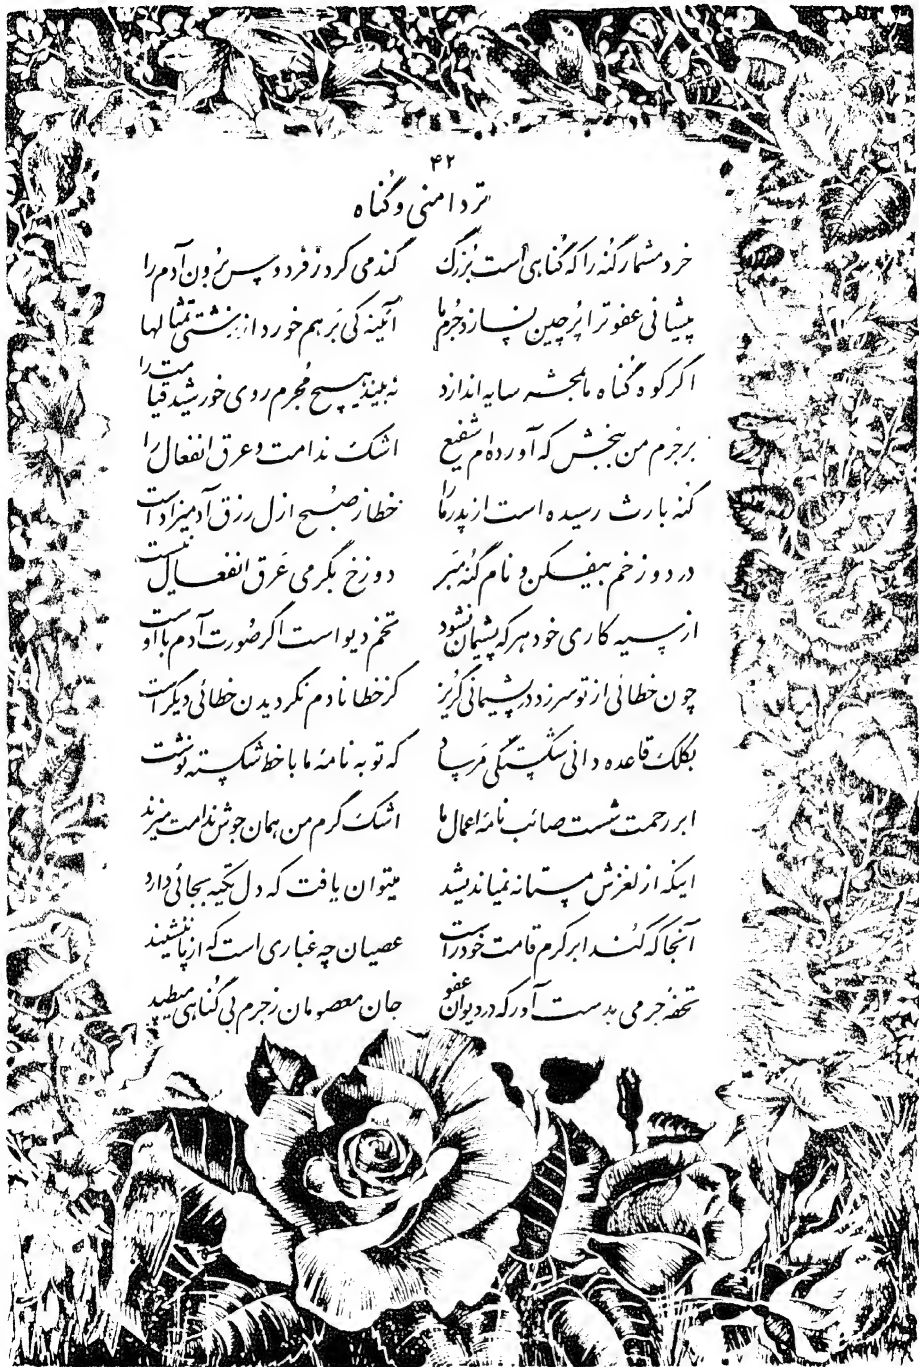 ۴۲
تردامنی و گناه
خرد مشمار گنه را که گناهی است بزرگ گندمی کرد ز فردوس برون آدم را
پیشانی عفو ترا پرچین نسازد جرم ما آئینه کی برهم خورد از زشتی تمثالها
اگر کوه گناه ما بمحشر سایه اندازد نه بیند هیچ مجرم روی خورشید قیامت را
بر جرم من ببخش که آورده‌ام شفیع اشک ندامت و عرق انفعال را
گنه بارث رسیده است از پدر ما را خطا ز صبح ازل رزق آدمیزاد است
در دوزخم بیفکن و نام گنه مبر دوزخ بگرمی عرق انفعال نیست
از سیه کاری خود هر که پشیمان نشود تخم دیو است اگر صورت آدم با اوست
چون خطائی از تو سر زد در پشیمانی گریز کز خطا نادم نگردیدن خطائی دیگر است
بکلک قاعده دانی شکستگی مرساد که توبه نامهٔ ما با خط شکسته نوشت
ابر رحمت شست صائب نامهٔ اعمال ما اشک گرم من همان جوش ندامت میزند
اینکه از لغزش مستانه نمیاندیشد میتوان یافت که دل تکیه بجائی دارد
آنجا که کند ابر کرم قامت خود راست عصیان چه غباری است که از پا ننشیند
تحفه جرمی بدست آور که در دیوان عفو جان معصومان ز جرم بی گناهی میطپد